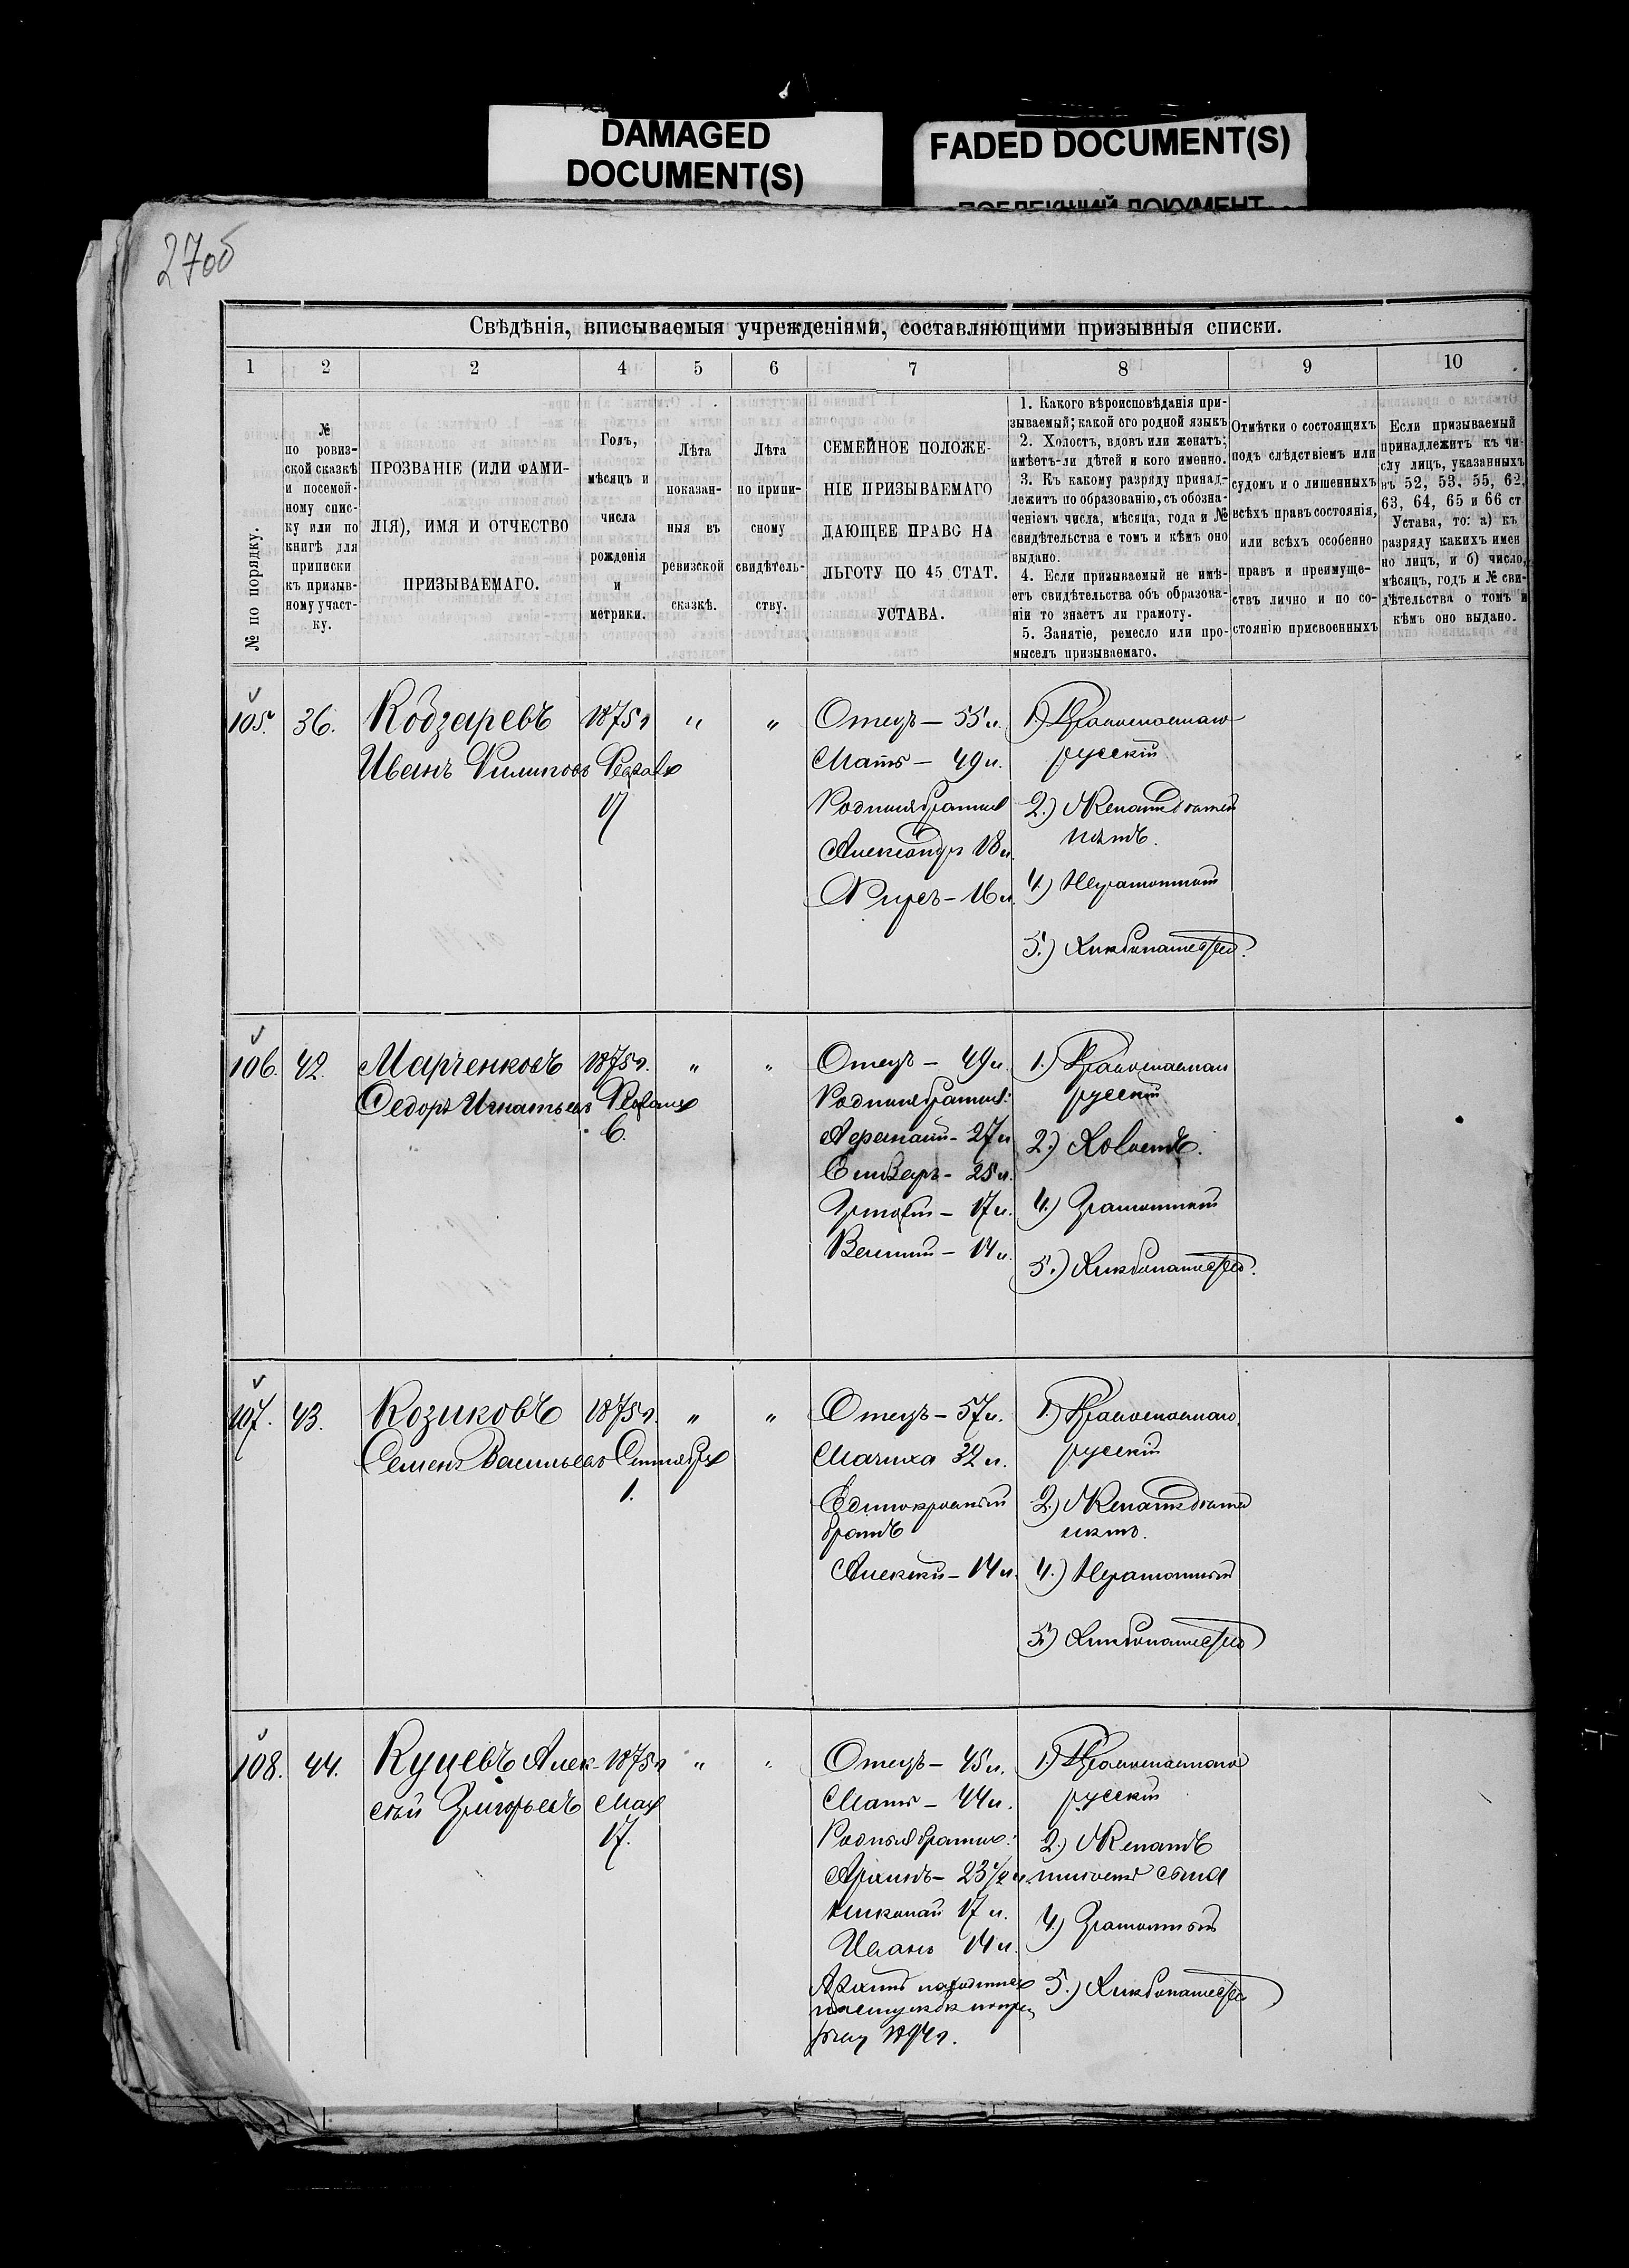 DAMAGED
DOCUMENT(S)
FADED DOCUMENT(S)
27об
Свѣдѣнія, вписываемыя учрежденіями, составляющими призывныя списки.
1
2
2
4
5
6
7
8
9
10
№ по порядку.
№
по ровиз-
ской сказкѣ
и посемей-
ному спис-
ку или по
книгѣ для
приписки
къ призыв-
ному участ-
ку.
ПРОЗВАНІЕ (ИЛИ ФАМИ-
ЛІЯ), ИМЯ И ОТЧЕСТВО
ПРИЗЫВАЕМАГО.
Годъ,
мѣсяцъ и
числа
рожденія
и
метрики.
Лѣта
показан-
ныя въ
ревизской
сказкѣ.
Лѣта
по припи-
сному
свидѣтель-
ству.
СЕМЕЙНОЕ ПОЛОЖЕ-
НІЕ ПРИЗЫВАЕМАГО
ДАЮЩЕЕ ПРАВО НА
ЛЬГОТУ ПО 45 СТАТ.
УСТАВА.
1. Какого вѣроисповѣданія при-
зываемый; какой его родной языкъ
2. Холостъ, вдовъ или женатъ;
имѣетъ-ли дѣтей и кого именно.
3. Къ какому разряду принад-
лежитъ по образованію, съ обозна-
ченіемъ числа, мѣсяца, года и №
свидѣтельства о томъ и кѣмъ оно
выдано.
4. Если призываемый не имѣ-
етъ свидѣтельства объ образова-
ніи то знаетъ ли грамоту.
5. Занятіе, ремесло или про-
мыселъ призываемаго.
Отмѣтки о состоящихъ
подъ слѣдствіемъ или
судомъ и о лишенныхъ
всѣхъ правъ состоянія,
или всѣхъ особенно
правъ и преимуще-
ствъ лично и по со-
стоянію присвоенныхъ
Если призываемый
принадлежитъ къ чи-
слу лицъ, указанныхъ
въ 52, 53, 55, 62,
63, 64, 65 и 66 ст
Устава, то: а) къ
разряду какихъ имен
но лицъ, и б) число,
мѣсяцъ, годъ и № сви-
дѣтельства о томъ и
кѣмъ оно выдано.
105. 36. Кобзаревъ 1875г " "
Иванъ Филипов
17
Отецъ – 55 л.
Мать – 49 л.
Родныя братья
Александръ 18 л.
– 16 л.
1.) Православнаго
русскій
2.) Женатъ дѣтей
нѣтъ.
4.) Неграмотный
5.) Хлѣбопашество.
106. 42. Марченковъ 1875г. " "
Федоръ Игнатьевъ
6.
Отецъ – 49 л.
Родныя братья:
– 27 л.
– 25 л.
– 17 л.
– 14 л.
1.) Православнаго
русскій
2.) Холостъ.
4.) Грамотный
5.) Хлѣбопашество.
107. 43. Козиковъ 1875г. " "
Семенъ Васильевъ Сентября
1.
Отецъ – 57 л.
Мачиха 32 л.
Единокровный
братъ
Алексѣй – 14 л.
1.) Православнаго
русскій
2.) Женатъ дѣтей
нѣтъ.
4.) Неграмотный
5.) Хлѣбопашество
108. 44. Куцевъ Алек- 1875г " "
сѣй Григорьевъ Мая
17.
Отецъ – 45 л.
Мать – 44 л.
Родныя братья:
Архипъ – 23 1/2 л.
Николай 17 л.
Иванъ 14 л.
Архипъ находится
1894г.
1.) Православнаго
русскій
2.) Женатъ
имѣетъ сына
4.) Грамотный
5.) Хлѣбопашество